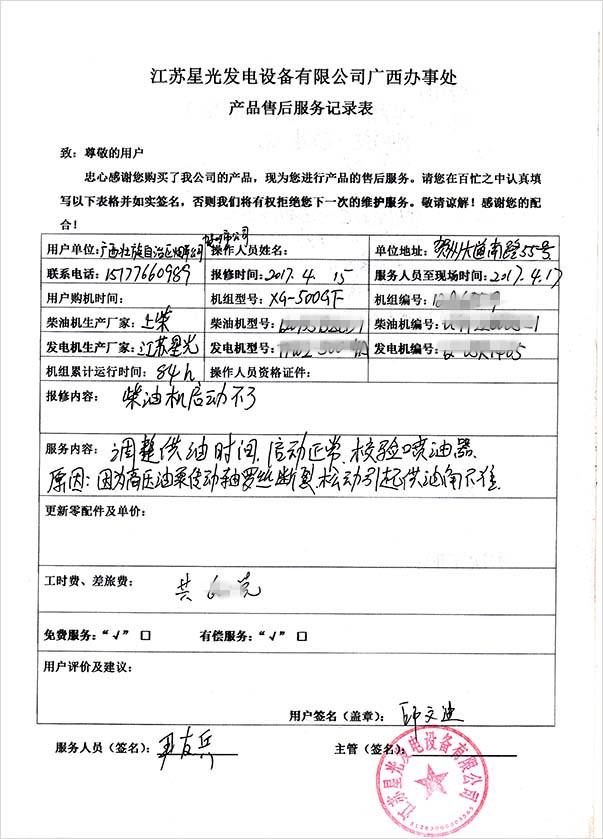 江苏星光发电设备有限公司广西办事处
产品售后服务记录表
致：尊敬的用户
忠心感谢您购买了我公司的产品，现为您进行产品的售后服务。请您在百忙之中认真填
写以下表格并如实签名，否则我们将有权拒绝您下一次的维护服务。敬请谅解！感谢您的配
合！
用户单位：广西壮族自治区 公司 操作人员姓名： 单位地址：贺州大道南路55号
联系电话：15177660989 报修时间：2017.4.15 服务人员至现场时间：2017.4.17
用户购机时间： 机组型号：XG-500GF 机组编号：
柴油机生产厂家：上柴 柴油机型号： 柴油机编号：
发电机生产厂家：江苏星光 发电机型号： 发电机编号：
机组累计运行时间：84h 操作人员资格证件：
报修内容：柴油机启动不了
服务内容：调整供油时间，启动正常、校验喷油器.
原因：因为高压油泵传动轴罗丝断裂，松动引起供油角不准.
更新零配件及单价：
工时费、差旅费： 共 元
免费服务：“√”□ 有偿服务：“√”□
用户评价及建议：
用户签名（盖章）： 邱文迪
服务人员（签名）： 友兵 主管（签名）：
江苏星光发电设备有限公司